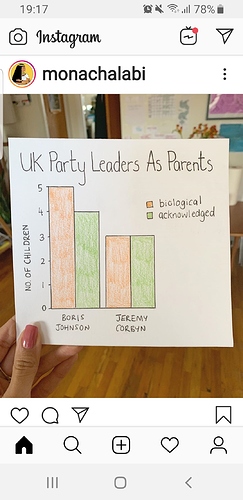 19:17
78%
Instagram
monachalabi
UK Party Leaders As Parents
biological
acknowledged
NO. OF CHILDREN
5
4
3
2
1
0
BORIS
JOHNSON
JEREMY
CORBYN